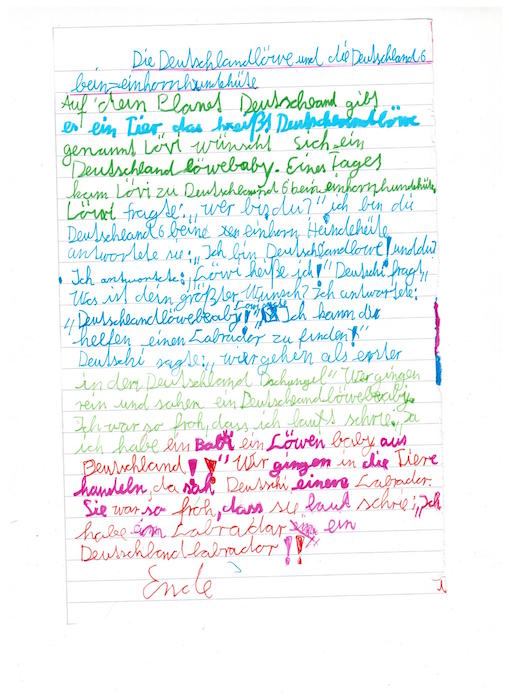 Die Deutschlandlöwe und die Deutschland 6
bein=einhornhundehüte
Auf dem Planet Deutschland gibs
es ein Tier das heißt Deutschlandlöwe
genannt Lövi wünscht sich ein
Deutschland löwebaby. Eines Tages
kam Lövi zu Deutschland 6 bein einhornhundehüte
Löwi fragte: „wer bis du?" ich bin die
Deutschland 6 beine einhorn Hundehüte
antwortete sie: „Ich bin Deutschlandlöwe! und du?
Ich antwortete: „Löwi heiße ich!" Deutschi fragt „
Was ist dein größter Wunsch? Ich antwortete:
„Deutschlandlöwebaby!" „Ich kann dir
helfen einen Labrador zu finden!"
Deutschi sagte: „wir gehen als erster
in den Deutschland Dschungel" Wir gingen
rein und sahen ein Deutschlandlöwebaby.
Ich war so froh, dass ich lauts schrie: „Ja
ich habe ein Babi ein Löwen baby aus
Deutschland!!" Wir gingen in die Tiere
handeln, da sah Deutschi einene Labrador.
Sie war so froh, dass sie laut schrie: „Ich
habe ein Labradar ein
Deutschlandlabrador!!
Ende